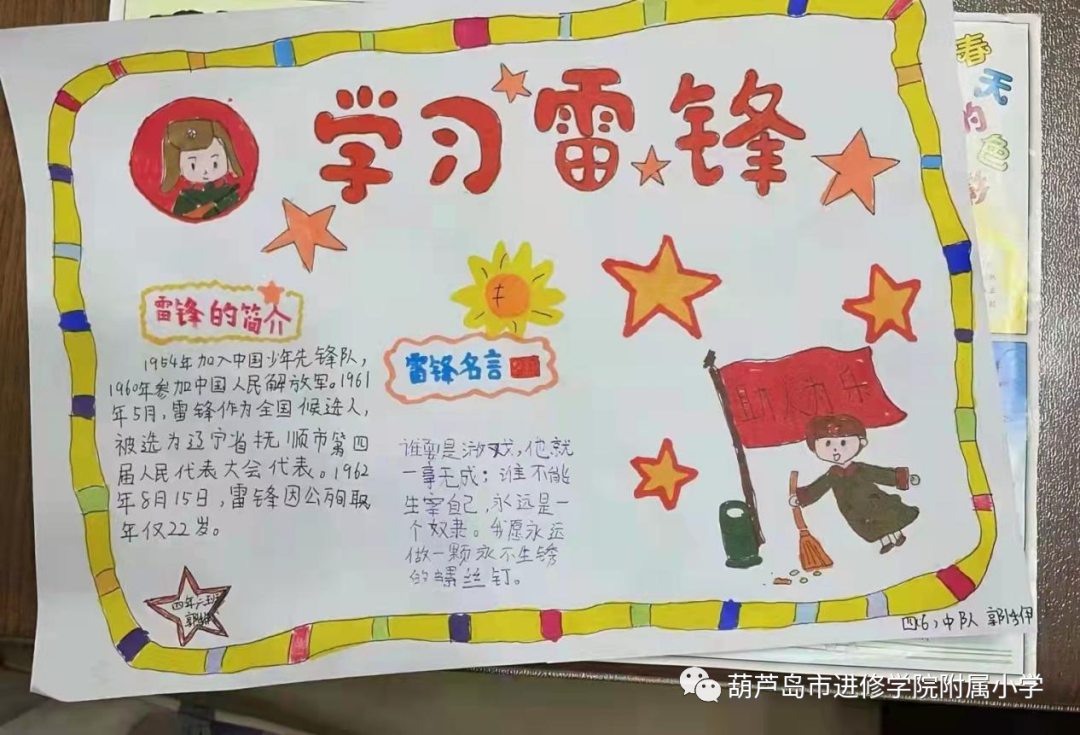 学习雷锋
雷锋的简介
1954年加入中国少年先锋队，
1960年参加中国人民解放军。1961
年5月，雷锋作为全国候选人，
被选为辽宁省抚顺市第四
届人民代表大会代表。1962
年8月15日，雷锋因公殉职
年仅22岁。
雷锋名言
谁要是游戏，他就
一事无成；谁不能
主宰自己，永远是一
个奴隶。我愿永远
做一颗永不生锈
的螺丝钉。
助人为乐
四年六班
郭
四(6)中队 郭伊
春天的色彩
葫芦岛市进修学院附属小学